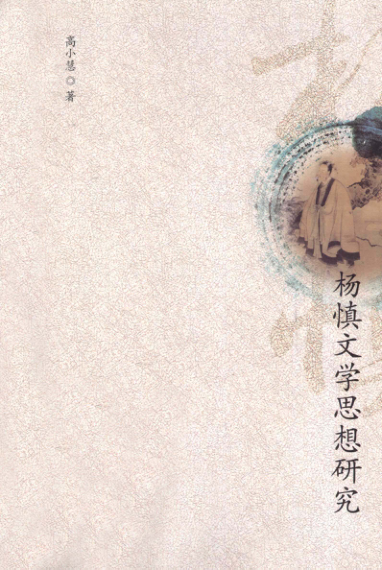 高小慧◎著
杨慎文学思想研究